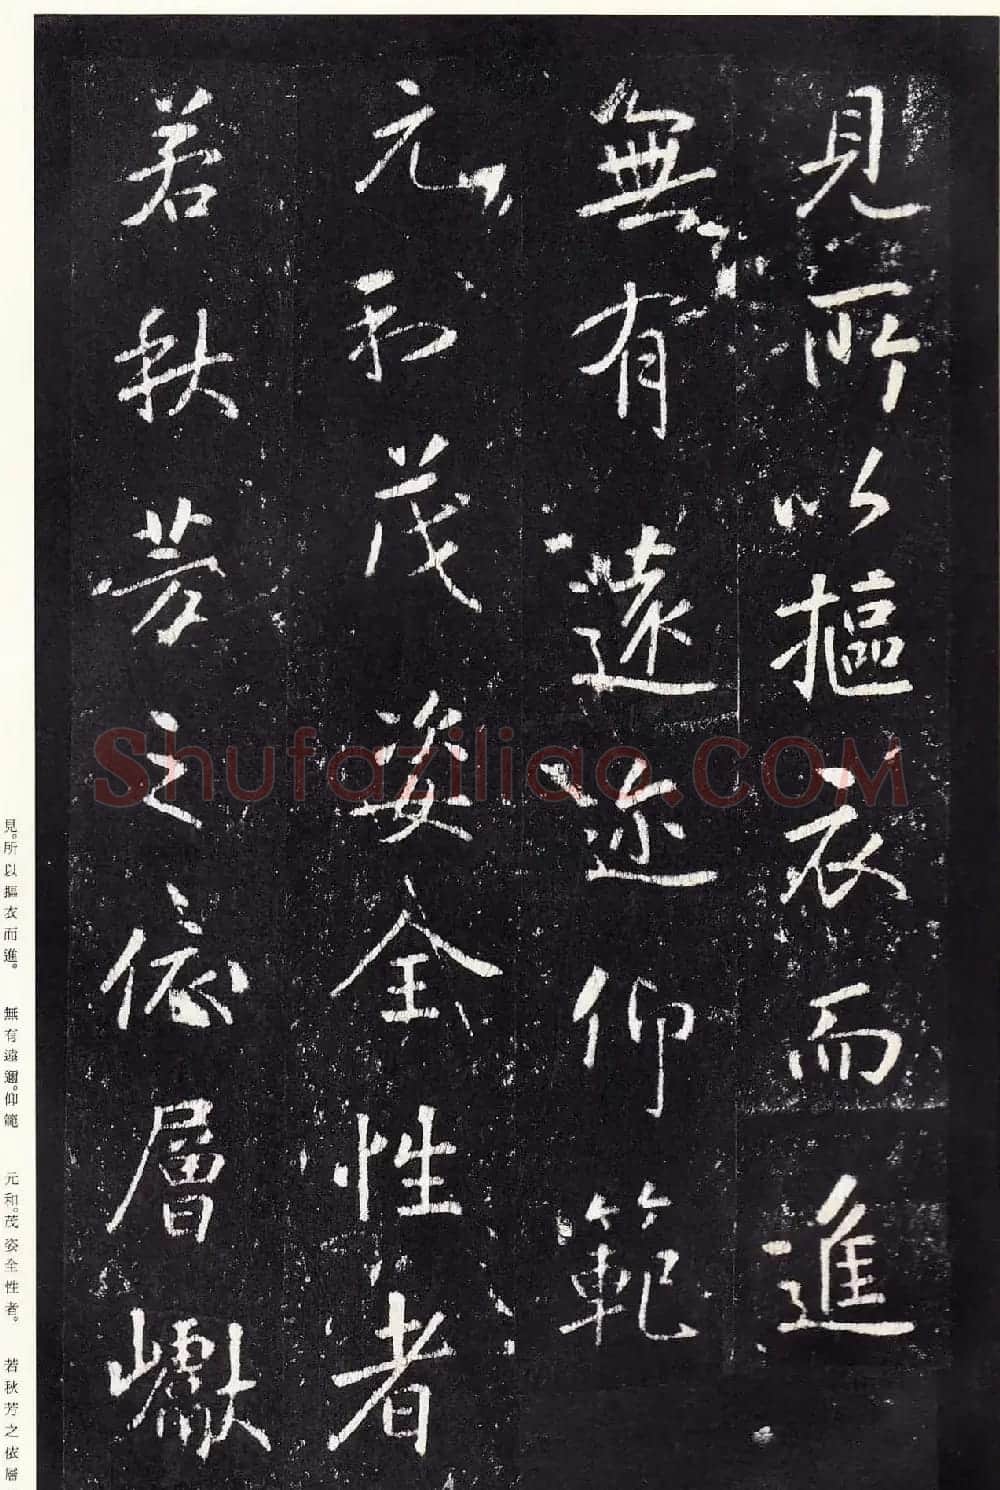 見所以摳衣而進
無有遠迩仰範
元和茂姿全性者
若秋芳之依層巘
見。所以摳衣而進。　無有遠邇。仰範　元和。茂姿全性者。　若秋芳之依層
Shufaziliao.COM